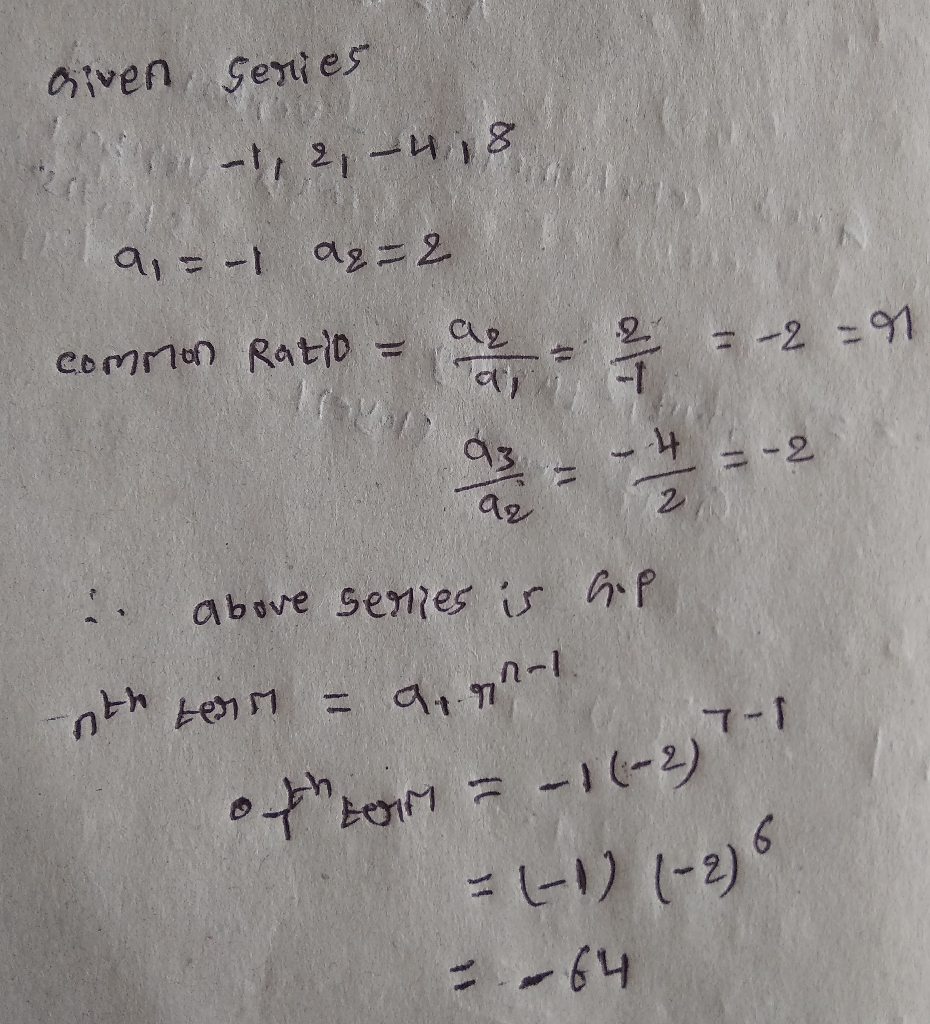 Given series
-1, 2, -4, 8
a₁ = -1 a₂ = 2
common Ratio = a₂/a₁ = 2/-1 = -2 = r
a₃/a₂ = -4/2 = -2
∴ above series is G.P
nth term = a₁.rⁿ⁻¹
7th term = -1(-2)⁷⁻¹
= (-1) (-2)⁶
= -64